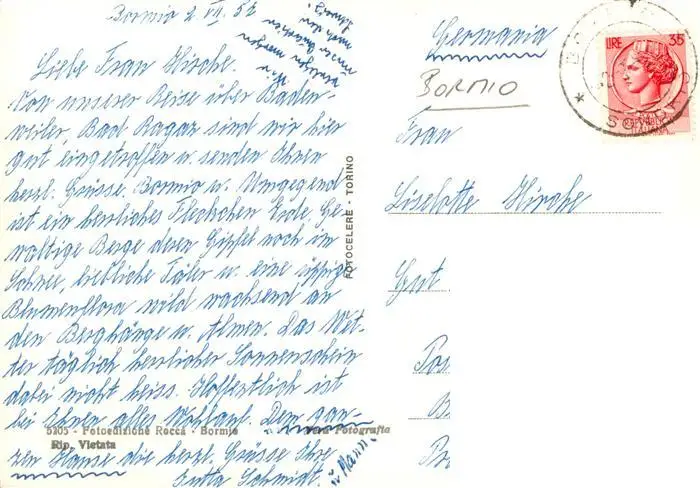 Bormio 2 VII. 52
Liebe Frau Hirche.
Von unserer Reise über Baden-
weiler, Bad Ragaz sind wir hier
gut eingetroffen u. senden Ihnen
herzl. Grüsse. Bormio u. Umgegend
ist ein herrliches Fleckchen Erde Ge
waltige Berge deren Gipfel noch im
Schnee, liebliche Täler u. eine üppige
Blumenflora wild wachsend an
den Berghänge u. Almen. Das Wet-
ter täglich herrlicher Sonnenschein
dabei nicht heiss. Hoffentlich ist
bei Ihnen alles Wohlauf. Dem gan-
zen Hause die herzl. Grüsse Ihre
Jutta Schmidt.
u Mann
5205 - Fotoedizione Rocca - Bormio
Vera Fotografia
Rip. Vietata
FOTOCELERE - TORINO
Germania
BORMIO
Frau
Liselotte Hirche
Gut
Pos
B
LIRE 35